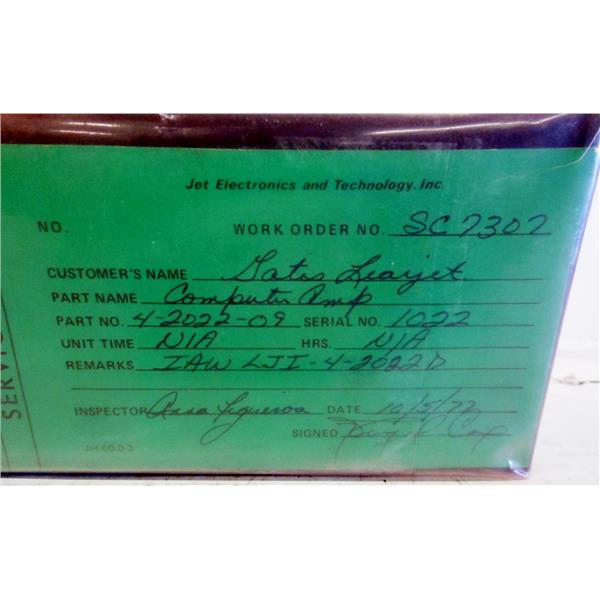 Jet Electronics and Technology, Inc.
NO. WORK ORDER NO. SC 7307
CUSTOMER'S NAME Gates Learjet
PART NAME Computer Amp
PART NO. 4-2022-09 SERIAL NO. 1022
UNIT TIME N/A HRS. N/A
REMARKS IAW LJI-4-2022D
INSPECTOR Figueroa DATE 10/5/72
SIGNED
Jet 60.0-3
SERVIC